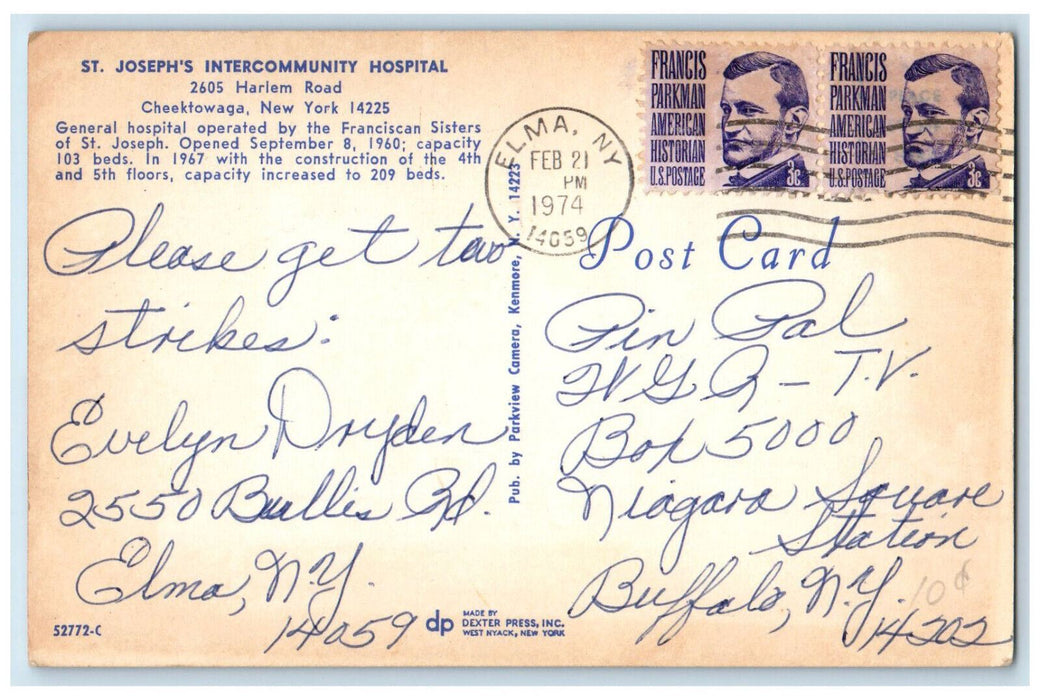 ST. JOSEPH'S INTERCOMMUNITY HOSPITAL
2605 Harlem Road
Cheektowaga, New York 14225
General hospital operated by the Franciscan Sisters
of St. Joseph. Opened September 8, 1960; capacity
103 beds. In 1967 with the construction of the 4th
and 5th floors, capacity increased to 209 beds.
Please get two
strikes:
Evelyn Dryden
2550 Bullis Rd.
Elma, N.Y.
14059
52772-C
dp
MADE BY
DEXTER PRESS, INC.
WEST NYACK, NEW YORK
Pub. by Parkview Camera, Kenmore, N. Y. 14223
ELMA, NY
FEB 21
PM
1974
14059
FRANCIS
PARKMAN
AMERICAN
HISTORIAN
U.S.POSTAGE
3c
FRANCIS
PARKMAN
AMERICAN
HISTORIAN
U.S.POSTAGE
3c
Post Card
Pin Pal
W G R - T.V.
Box 5000
Niagara Square
Station
Buffalo, N.Y.
14202
10¢